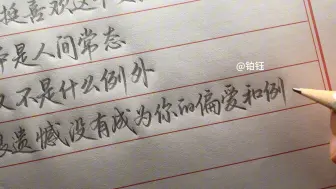 挺喜欢这个
是人间常态
又不是什么例外
遗憾没有成为你的偏爱和例
@铂钰